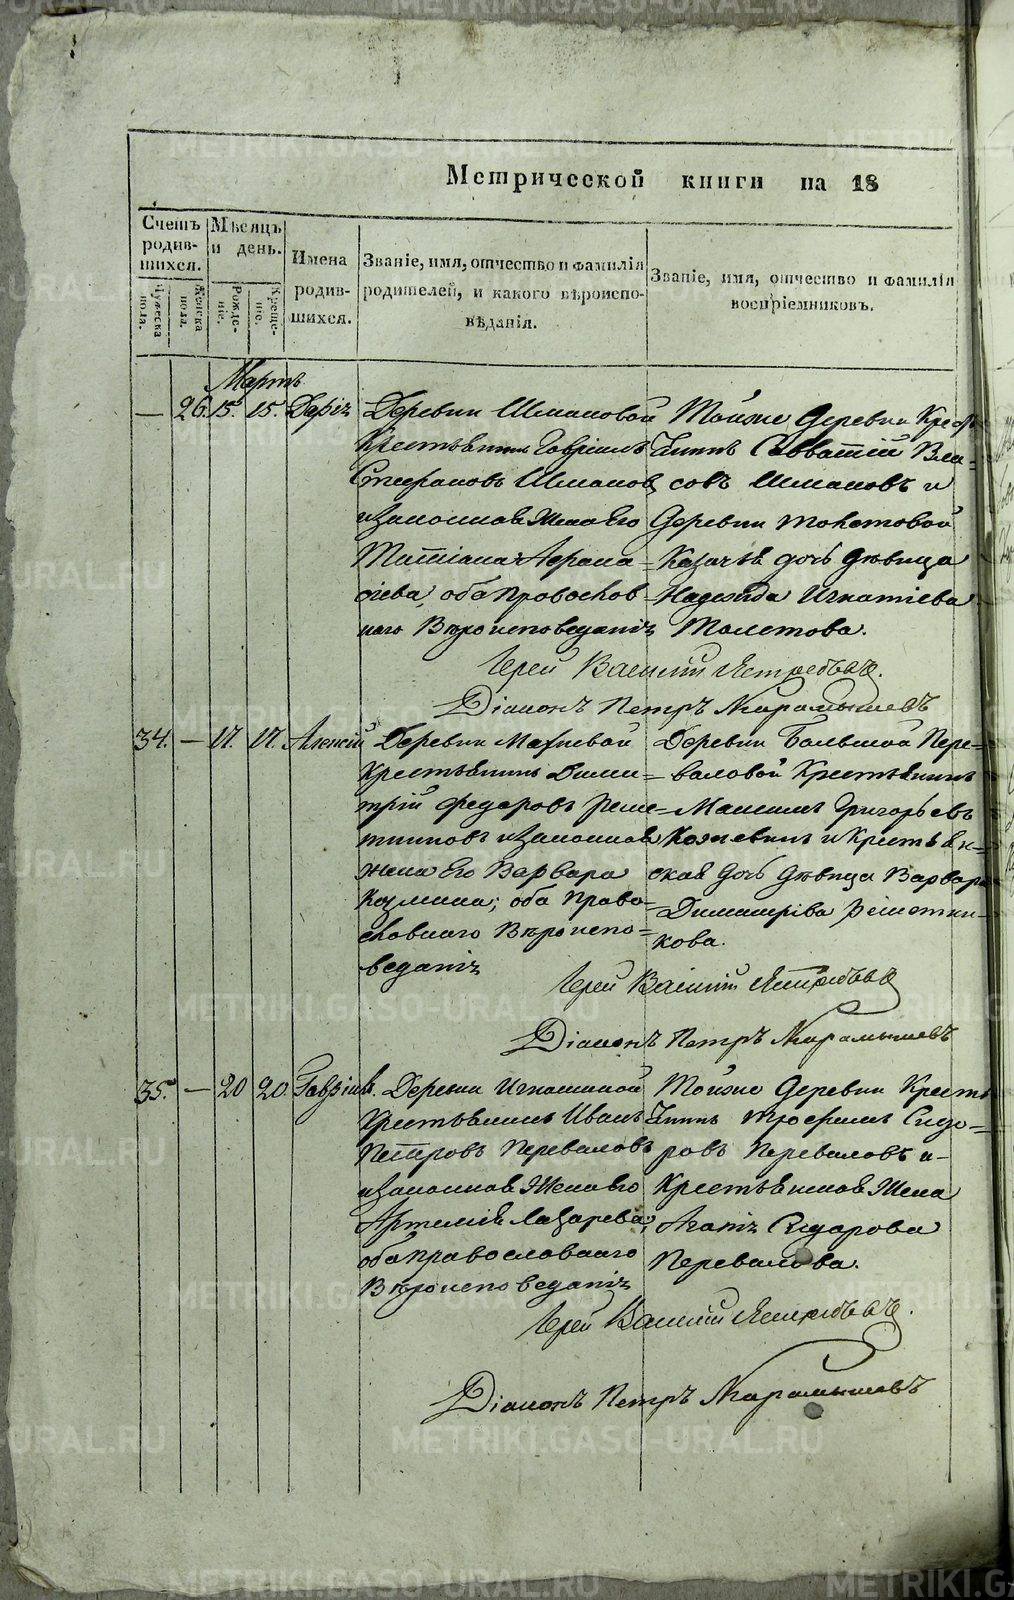 METRIKI.GASO-URAL.RU
Метрической книги на 18
Счетъ родившихся.
Мужеска пола.
Женска пола.
Мѣсяцъ и день.
Рожденіе.
Крещеніе.
Имена родившихся.
Званіе, имя, отчество и фамилія родителей, и какого вѣроисповѣданія.
Званіе, имя, отчество и фамилія воспріемниковъ.
Мартъ
— 26. 15. 15. Дарія
Деревни Шмаковой
Крестьянинъ Гавріилъ
Стефановъ Шмаковъ
и законная Жена Его
Татіана Афана-
сіева, оба Православ-
наго Вѣроисповеданія
Тойже Деревни Кресть-
янинъ Савватій Вла-
совъ Шмаковъ и
Деревни
Казачья дочь дѣвица
Надежда Игнатіева
Іерей Василій Ястребовъ.
Діаконъ Петръ Карамышевъ
34. — 17. 17. Алексій
Деревни
Крестьянинъ Дими-
трій Федоровъ Реше-
тниковъ и законная
Жена Его Варвара
Козмина; оба Право-
славнаго Вѣроиспо-
веданія
Деревни Большой Пере-
валовой Крестьянинъ
Максимъ Григорьевъ
Кожевинъ и Крестьян-
ская дочь дѣвица Варвара
Димитріева Решетни-
кова.
Іерей Василій Ястребовъ
Діаконъ Петръ Карамышевъ
35. — 20 20. Гавріилъ.
Деревни Игнашиной
Крестьянинъ Иванъ
Петровъ Переваловъ
и законная Жена Его
Артемія Лазарева;
оба православнаго
Вѣроисповеданія
Тойже Деревни Кресть-
янинъ Трофимъ Сидо-
ровъ Переваловъ и
Крестьянская Жена
Агапія Сидорова
Перевалова.
Іерей Василій Ястребовъ.
Діаконъ Петръ Карамышевъ